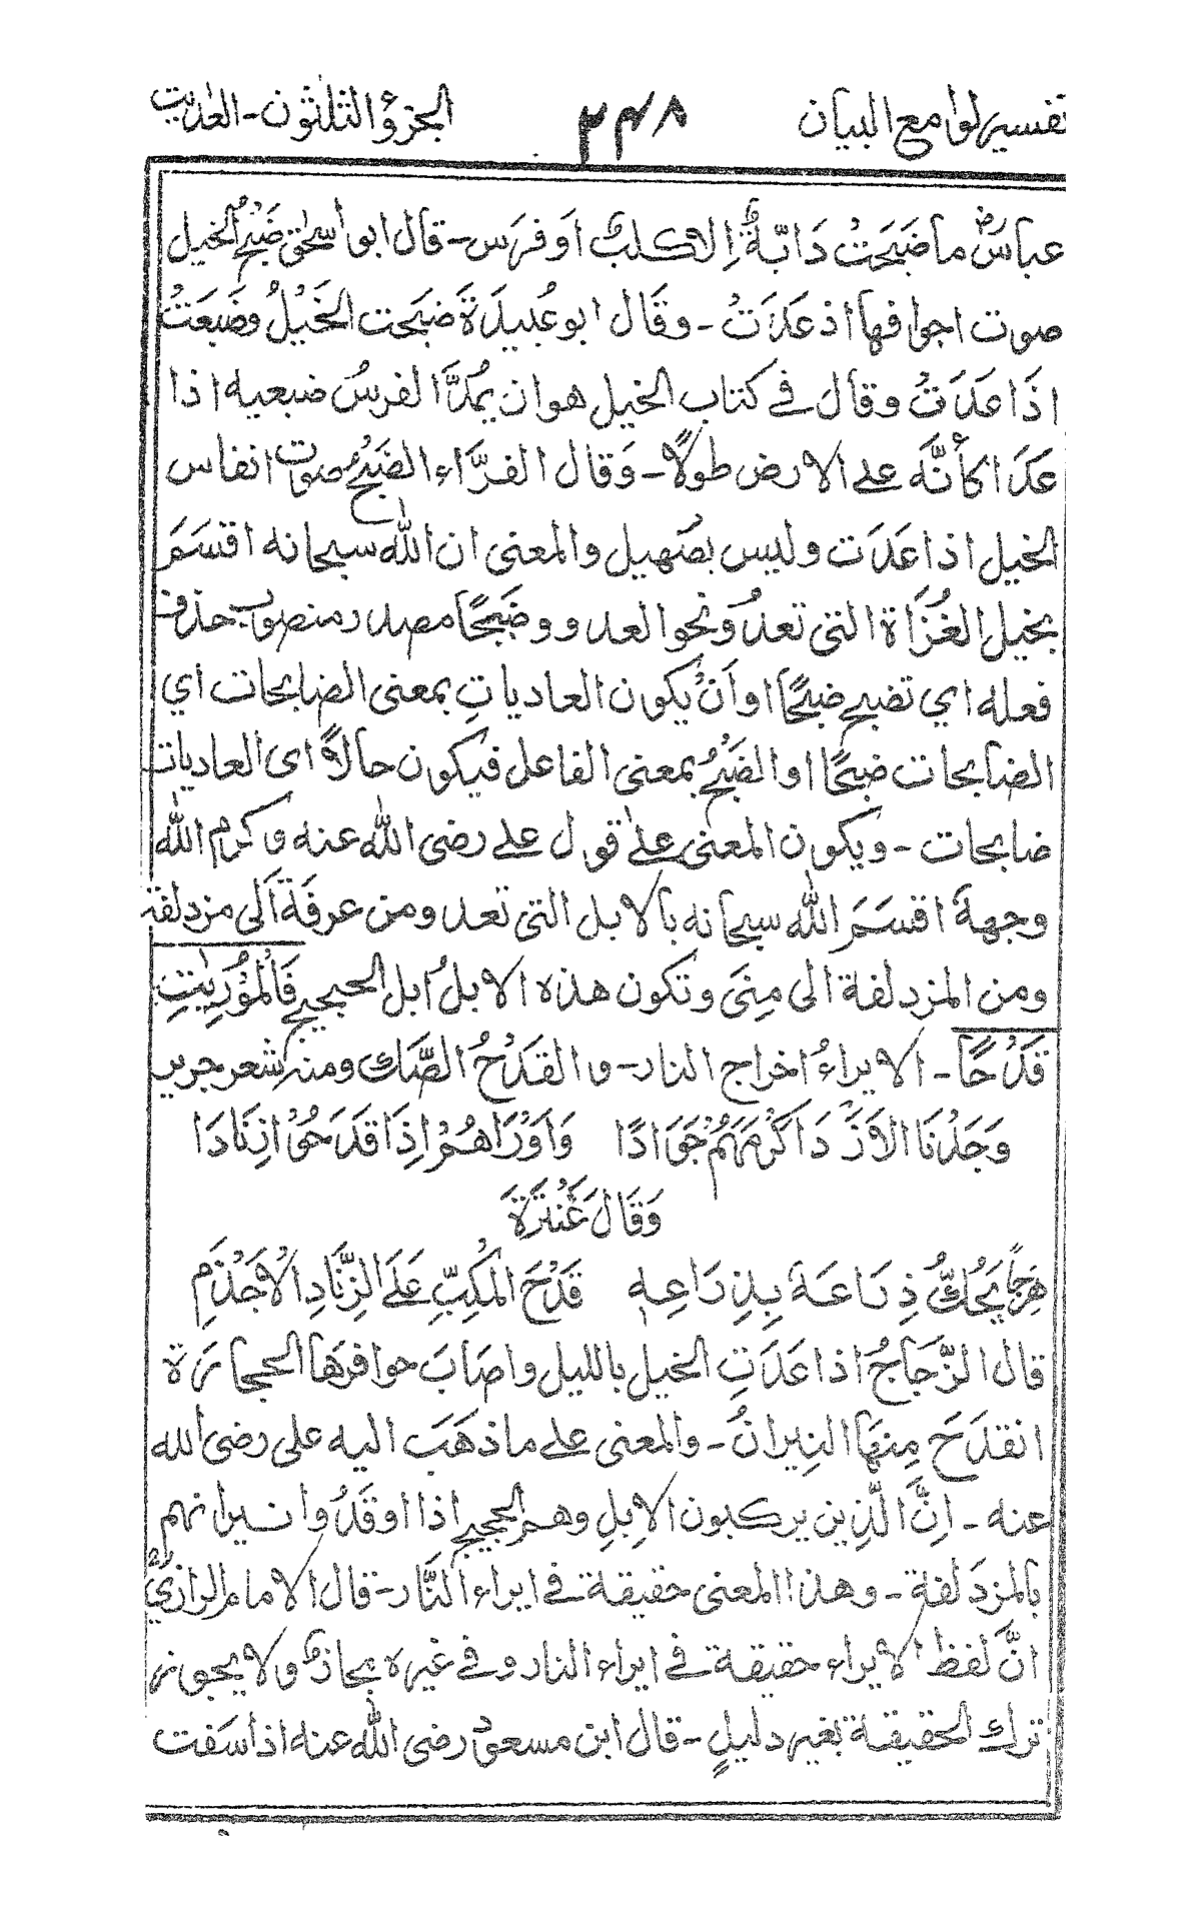 تفسير لوامع البيان ٣٤٨ الجزؤ الثلثون - العٰديٰت
عباسؓ ما ضَبَحَتْ دَابّةٌ اِلا كلبٌ اَو فَرَس - قال ابو اسحٰق ضَبْحُ الخيل
صوت اجوافها اذ عَدَتْ - وقَال ابو عُبيدَةَ ضبَحت الخَيْلُ وضَبَعَتْ
اذَا عَدَتْ وقال فے كتاب الخيل هو ان يمُدَّ الفرسُ ضبعيه اذا
عَدَا كأنَّه علے الارض طولًا - وَقال الفرَّاء الضَبْحُ صوت انفاس
الخيل اذا عَدَت وليس بصَهيل والمعنى ان اللّٰه سبحانه اقسَمَ
بخيل الغُزَاة التى تعدُو نحو العدو و ضَبْحًا مصدر منصوب حذف
فعله اي تضبح ضبحًا او اَنْ يكون العادياتِ بمعنى الضابحات اي
الضابحات ضبحًا او الضَبْحُ بمعنى الفاعل فيكون حالًا اى العاديات
ضابحات - ويكون المعنى علےٰ قول علے رضى اللّٰه عنه و كرم اللّٰه
وجههٗ اقسَمَ اللّٰه سبحانه بالابل التى تعدو من عرفَةَ اَلى مزدلفة
ومن المزدلفة الى مِنىٰ وتكون هذه الابلُ ابل الحجيج فَالْمُوْرِيٰتِ
قَدْحًا - الايراءُ اخراج النار - والقَدْحُ الصَّك ومنه شعر جرير
وَجَدْنَا الاَزْدَ اَكْرَمَهُمْ جَوَادًا وَاَوْرَاهُمْ اِذَا قَدَحُوْا زِنَادَا
وَقَالَ عَنْتَرَةَ
هَزِجًا يَحُكُّ ذِرَاعَهٗ بِذِرَاعِهٖ قَدْحَ الْمُكِبِّ عَلَے الزِّنَادِ الْاَجْذَمِ
قال الزَّجَاجُ اذا عَدَتِ الخيل بالليل واصَابَ حوافرهَا الحجارَة
انقدَحَ مِنهَا النِيرانُ - والمعنى علے ما ذهَبَ اليه على رضى الله
عنه - اِنَّ الَّذِين يركبون الاِبِلِ وهم الحجيج اذا اوقَدُوا نيرانهم
بالمزدَلفة - وهذا المعنى حقيقة فے ايراء النَّار - قال الامام الرازیؒ
انَّ لفظ الايراء حقيقة فے ايراء النار و فے غيره مجازٌ و لا يجوز
ترك الحقيقة بغير دليلٍ - قال ابن مسعودٍ رضى اللّٰه عنه اذا سَفت